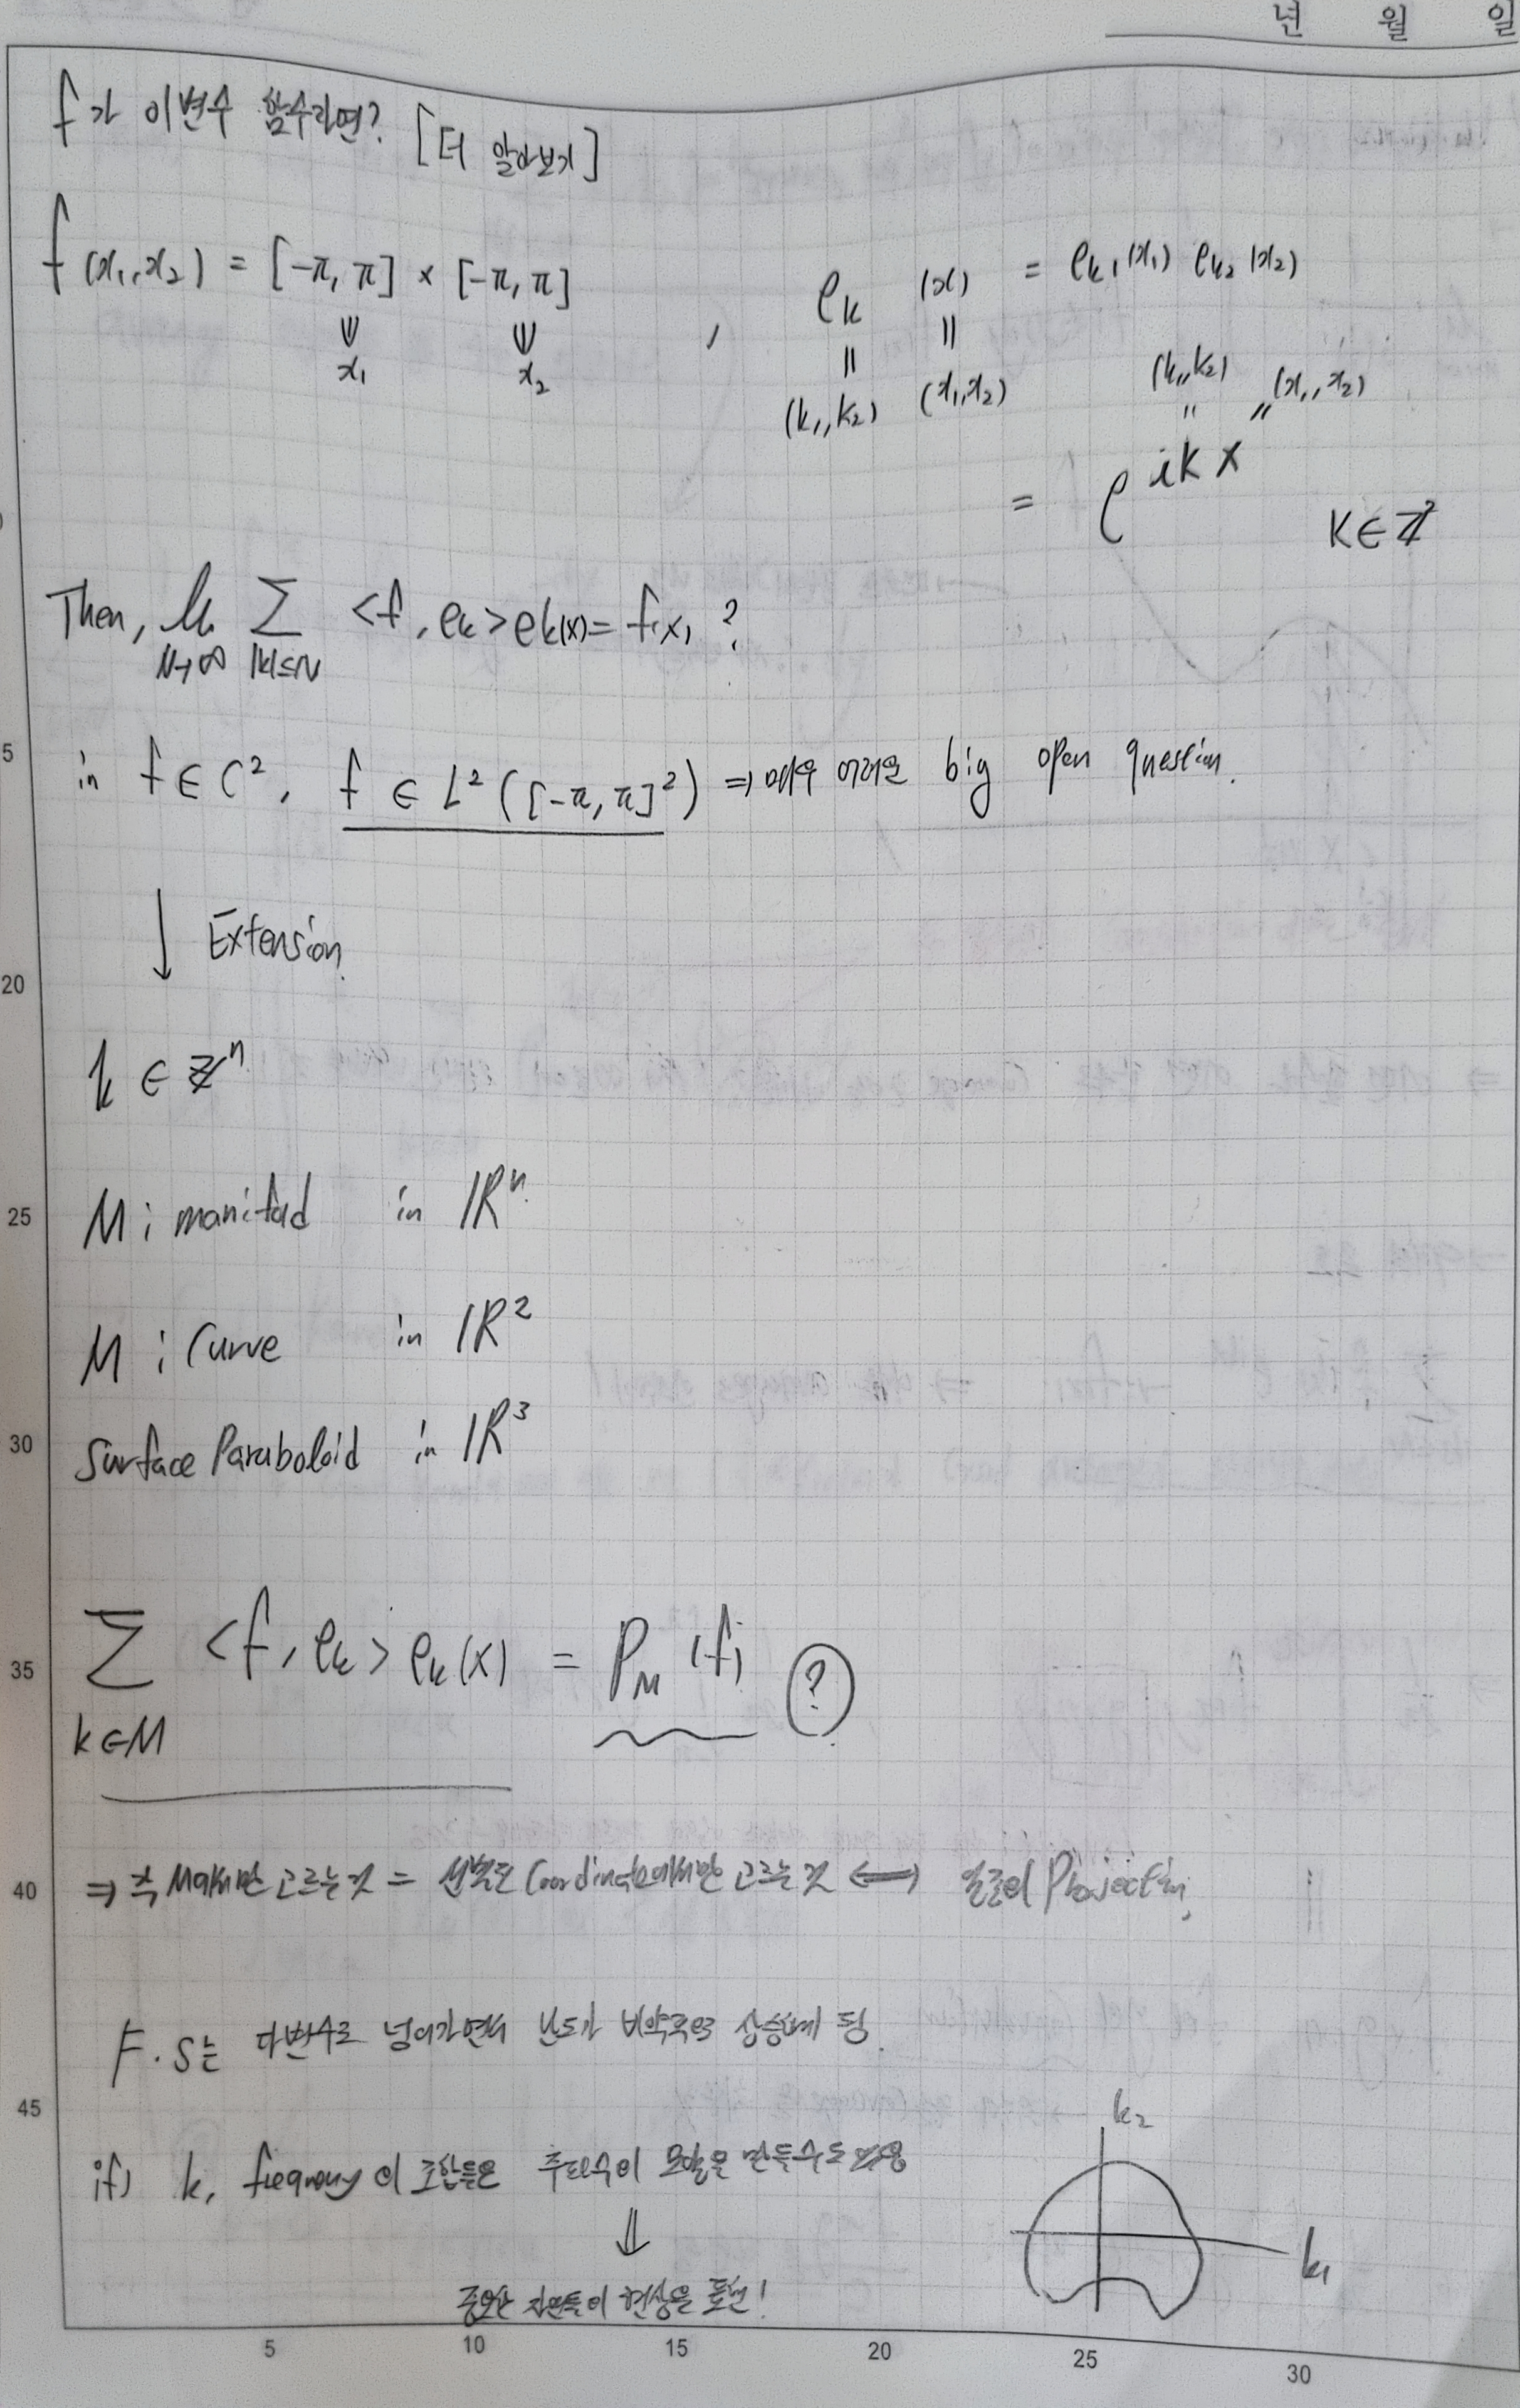 년 월 일
f가 이변수 함수라면? [더 알아보기]
f(x₁,x₂) = [-π, π] × [-π, π] , e_k (x) = e_k₁(x₁) e_k₂(x₂)
x₁ x₂ (k₁,k₂) (x₁,x₂) (k₁,k₂) (x₁,x₂)
= e^{ikx} k∈ℤ²
Then, lim_{N→∞} Σ_{|k|≤N} <f, e_k> e_k(x) = f(x) ?
in f ∈ C², f ∈ L²([-π, π]²) ⇒ 매우 어려운 big open question.
↓ Extension.
k ∈ ℤⁿ
M : manifold in ℝⁿ
M : Curve in ℝ²
Surface Paraboloid in ℝ³
Σ_{k∈M} <f, e_k> e_k(x) = P_M(f) ?
⇒ 즉 M에서만 고르는 것 = 선별된 Coordinate에서만 고르는 것 ⟺ 일종의 Projection
F.S는 다변수로 넘어가면서 난도가 비약적으로 상승하게 됨.
if) k, frequency의 조합들은 주파수의 모양을 만들수도 있음
⇓
중요한 자연들의 현상을 표현!
k₂
k₁
5
20
25
30
35
40
45
5 10 15 20 25 30